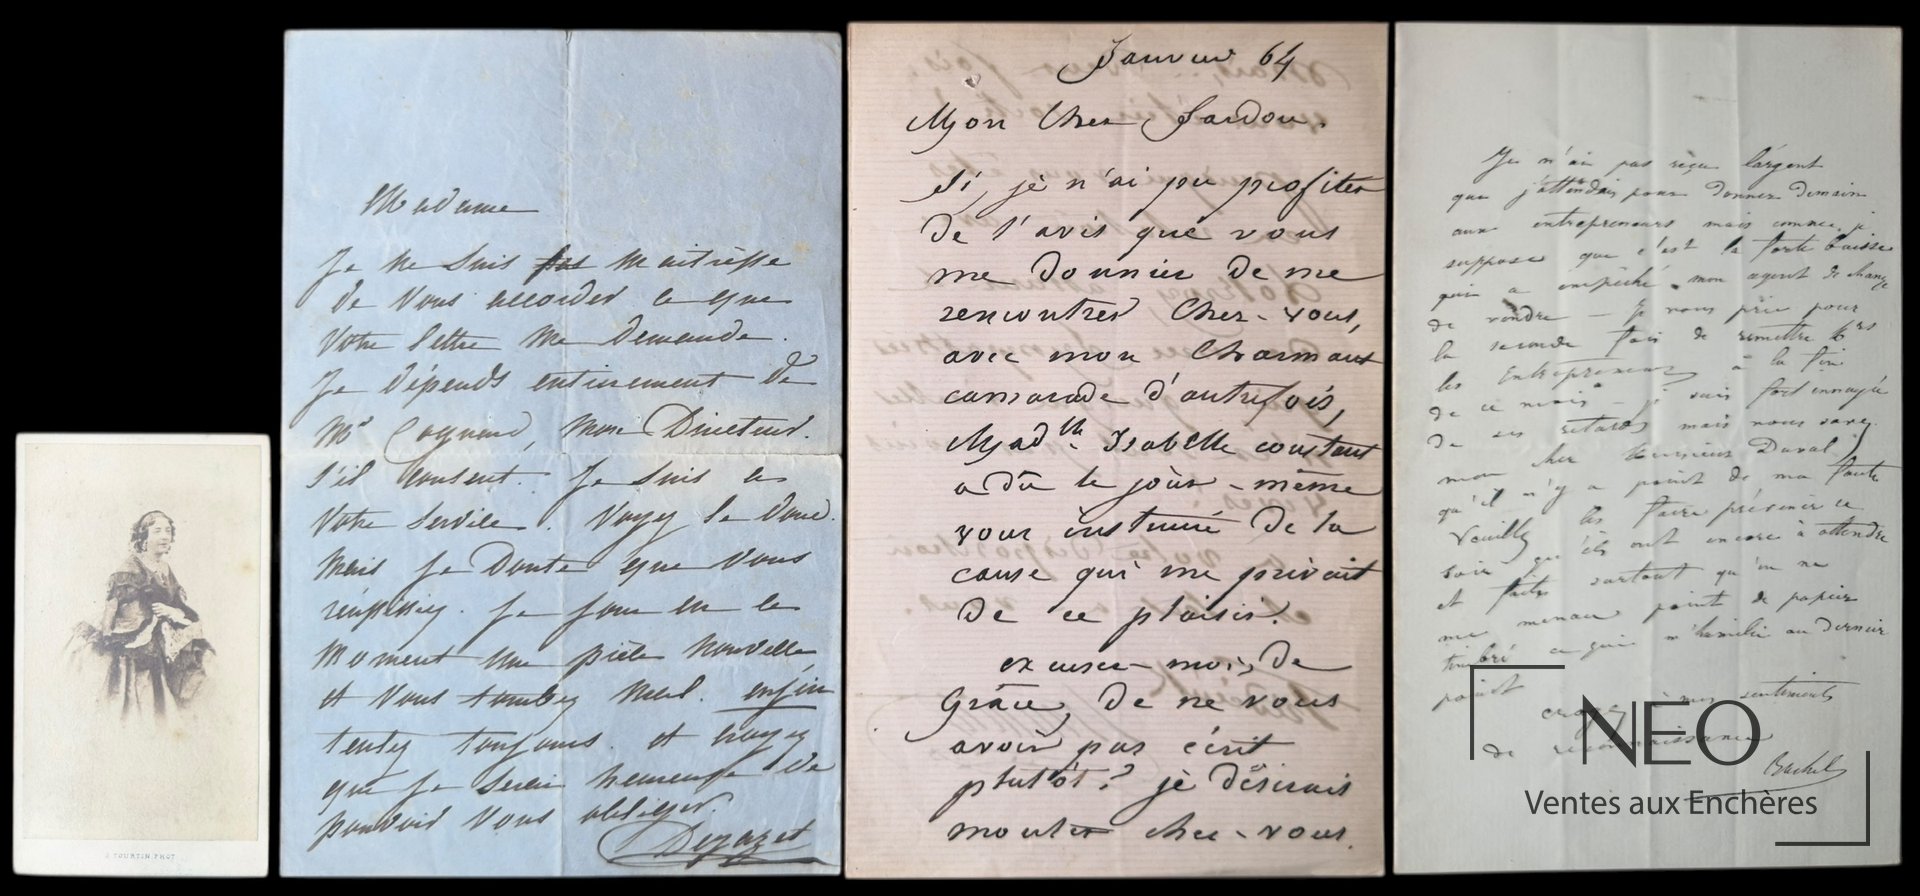 J. TOURTIN PHOT
Madame
Je ne suis pas maitresse
de vous accorder ce que
votre lettre me demande.
Je dépends entierement de
Mr Cogniard, mon Directeur.
s'il consent. Je suis a
votre service. Voyez le donc.
mais je Doute que vous
réussissiez. Je joue en ce
moment une pièce nouvelle
et vous tombez mal. enfin
tentez toujours. et croyez
que je serai heureuse de
pouvoir vous obliger.
Dejazet
Janvier 64
Mon Cher Sardou.
Si, je n'ai pu profiter
de l'avis que vous
me donniez de me
rencontrer Chez-vous,
avec mon Charmant
camarade d'autrefois,
Madlle Isabelle constant
a dû le jour-même
vous instruire de la
cause qui me privait
de ce plaisir.
excusez-moi, De
Grâce, de ne vous
avoir pas écrit
plutôt? je désirais
monter chez-vous.
Je n'ai pas reçu l'argent
que j'attendais pour donner demain
aux entrepreneurs mais comme je
suppose que c'est la forte baisse
qui a empêché mon agent de change
de vendre - Je vous prie pour
la seconde fois de remettre
les Entrepreneurs à la fin
de ce mois - je suis fort ennuyée
de ses retards mais vous savez
mon cher Monsieur Duval
qu'il n'y a point de ma faute
Veuillez les faire prévenir ce
soir qu'ils ont encore à attendre
et faites surtout qu'on ne
me menace point de papier
timbré ce qui m'humilie au dernier
point
croyez à mes sentiments
de reconnaissance
Rachel
NEO
Ventes aux Enchères